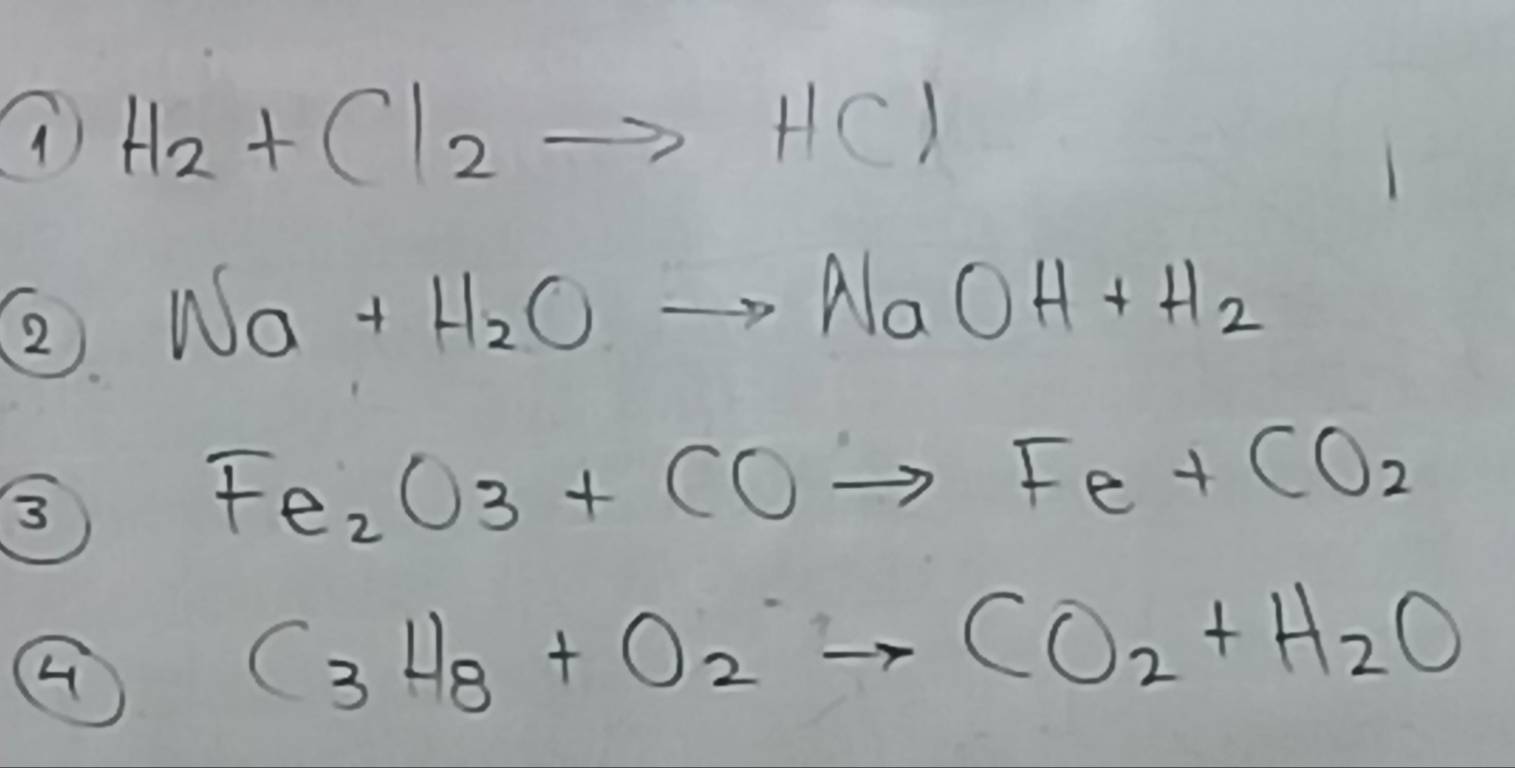 ① H₂ + Cl₂ → HCl
② Na + H₂O → NaOH + H₂
③ Fe₂O₃ + CO → Fe + CO₂
④ C₃H₈ + O₂ → CO₂ + H₂O